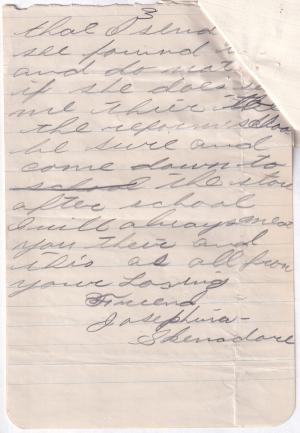 3
that I send
see found
and do mat
if she does
me their the
the reform school
be sure and
come down to
school the store
after school
I will always mea
you their and
this as all from
your Loving
Friend,
Josephina
Skenadore